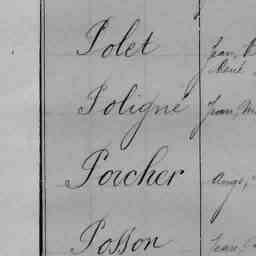 Polet Jean
René
Poligné Jean, M
Porcher Ange,
Posson Jean,